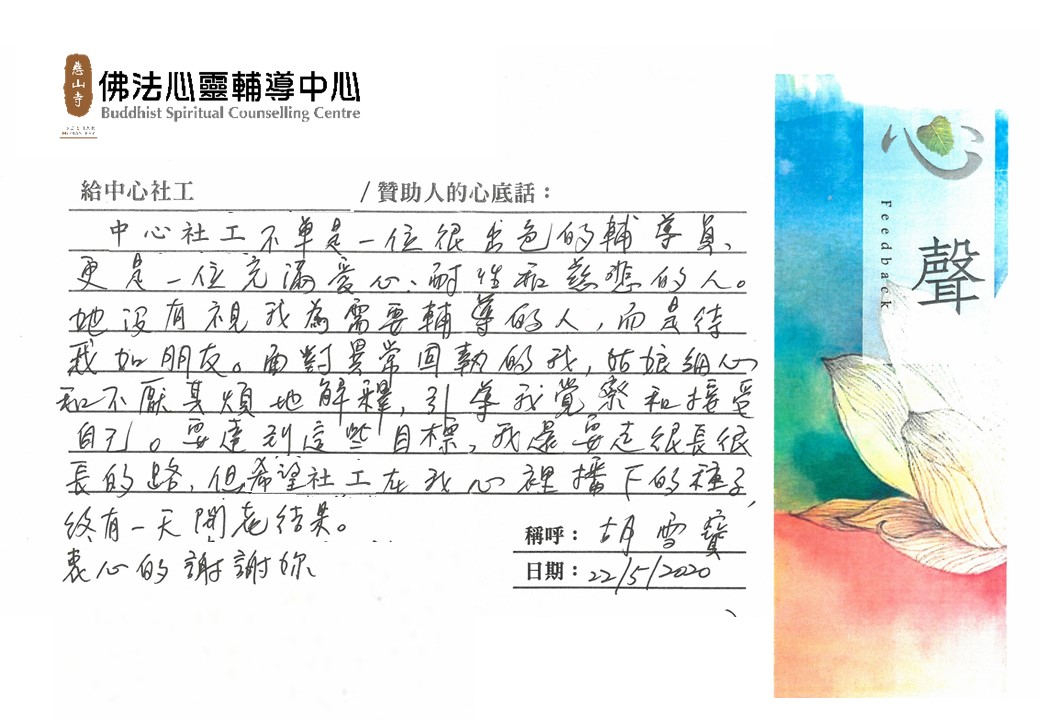 慈山寺
佛法心靈輔導中心
Buddhist Spiritual Counselling Centre
給中心社工 / 贊助人的心底話：
中心社工不單是一位很出色的輔導員、
更是一位充滿愛心、耐性和慈悲的人。
她沒有視我為需要輔導的人，而是待
我如朋友。面對異常固執的我，姑娘細心
和不厭其煩地解釋，引導我覺察和接受
自己。要達到這些目標，我還要走很長很
長的路，但希望社工在我心裡播下的種子，
終有一天開花結果。
衷心的謝謝你
稱呼： 胡雪寶
日期： 22/5/2020
心
聲
Feedback